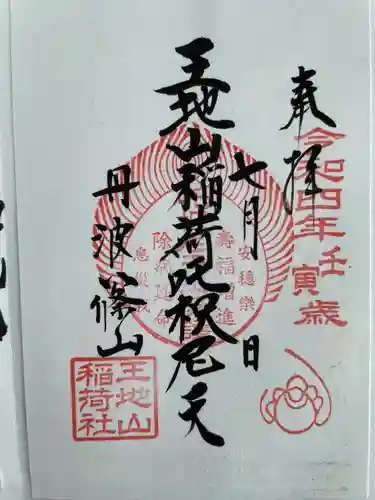 奉拝
令和四年壬
寅歳
七月 日
王地山稲荷咤枳尼天
安穏楽
寿福増進
除病延命
息災
丹波篠山
王地山
稲荷社